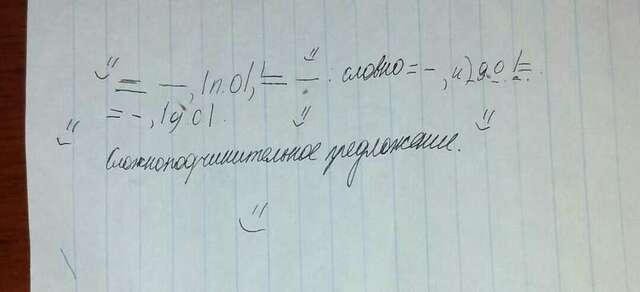 = —, |п.о|, |= — : словно = -, и |д.о| =
= -, |д о|.
Сложноподчинительное предложение.